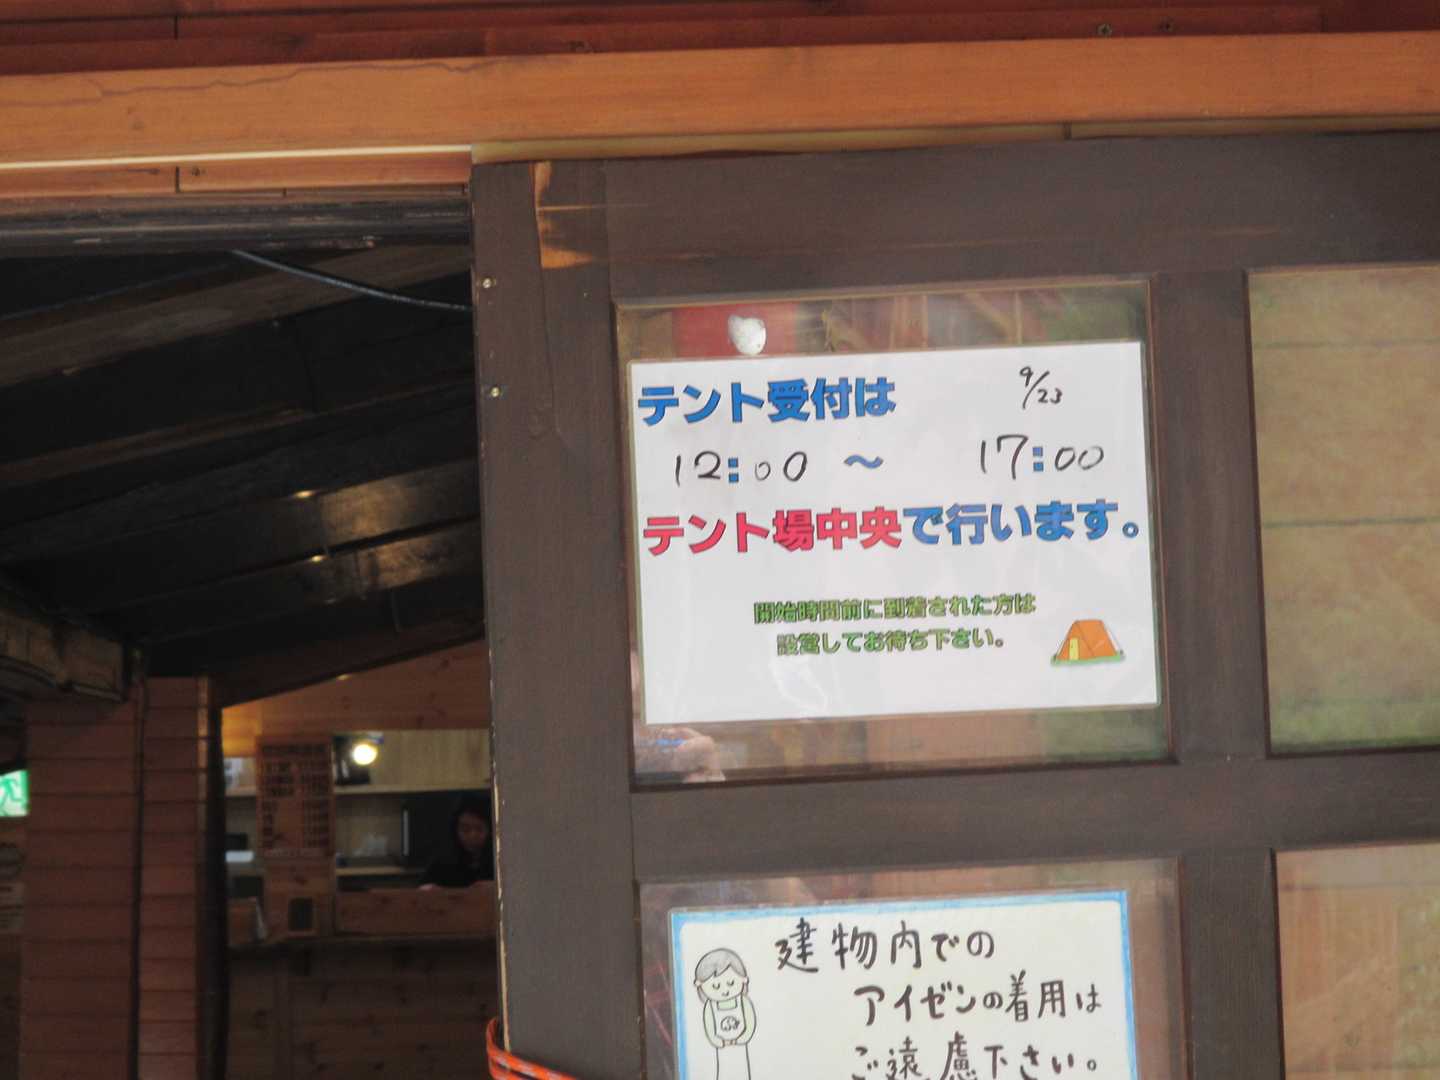 テント受付は 9/23
12:00 ～ 17:00
テント場中央で行います。
開始時間前に到着された方は
設営してお待ち下さい。
建物内での
アイゼンの着用は
ご遠慮下さい。